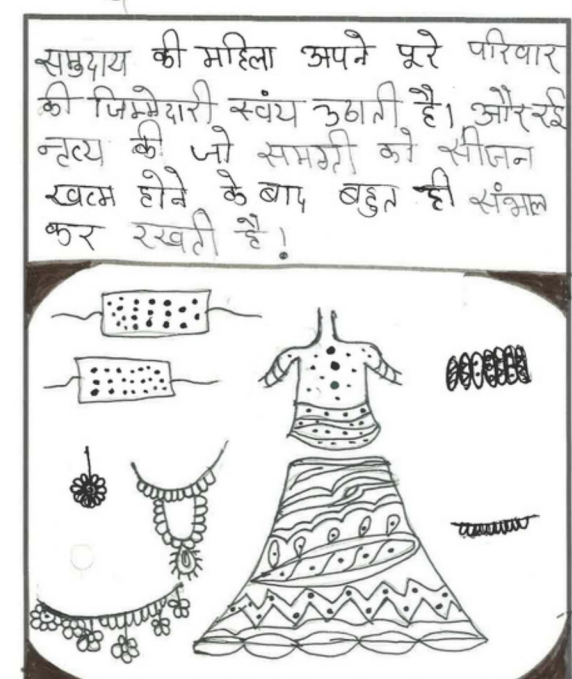 समुदाय की महिला अपने पूरे परिवार
की जिम्मेदारी स्वंय उठाती है। और रई
नृत्य की जो समग्री को सीजन
खत्म होने के बाद बहुत ही संभाल
कर रखती है!